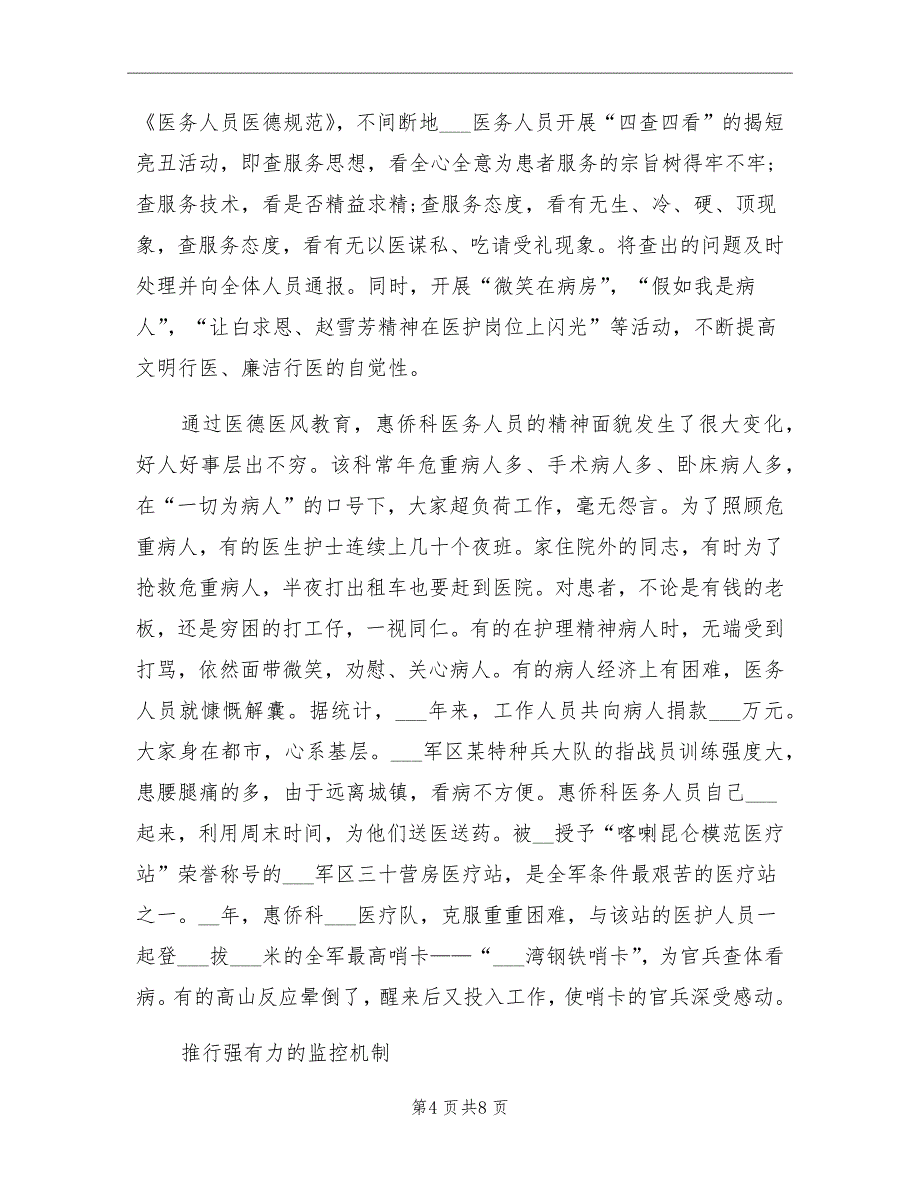 《医务人员医德规范》，不间断地___医务人员开展“四查四看”的揭短
亮丑活动，即查服务思想，看全心全意为患者服务的宗旨树得牢不牢;
查服务技术，看是否精益求精;查服务态度，看有无生、冷、硬、顶现
象，查服务态度，看有无以医谋私、吃请受礼现象。将查出的问题及时
处理并向全体人员通报。同时，开展“微笑在病房”，“假如我是病
人”，“让白求恩、赵雪芳精神在医护岗位上闪光”等活动，不断提高
文明行医、廉洁行医的自觉性。
通过医德医风教育，惠侨科医务人员的精神面貌发生了很大变化，
好人好事层出不穷。该科常年危重病人多、手术病人多、卧床病人多，
在“一切为病人”的口号下，大家超负荷工作，毫无怨言。为了照顾危
重病人，有的医生护士连续上几十个夜班。家住院外的同志，有时为了
抢救危重病人，半夜打出租车也要赶到医院。对患者，不论是有钱的老
板，还是穷困的打工仔，一视同仁。有的在护理精神病人时，无端受到
打骂，依然面带微笑，劝慰、关心病人。有的病人经济上有困难，医务
人员就慷慨解囊。据统计，___年来，工作人员共向病人捐款___万元。
大家身在都市，心系基层。___军区某特种兵大队的指战员训练强度大，
患腰腿痛的多，由于远离城镇，看病不方便。惠侨科医务人员自己___
起来，利用周末时间，为他们送医送药。被__授予“喀喇昆仑模范医疗
站”荣誉称号的___军区三十营房医疗站，是全军条件最艰苦的医疗站
之一。__年，惠侨科___医疗队，克服重重困难，与该站的医护人员一
起登___拔___米的全军最高哨卡——“___湾钢铁哨卡”，为官兵查体看
病。有的高山反应晕倒了，醒来后又投入工作，使哨卡的官兵深受感动。
推行强有力的监控机制
第4 页共8 页